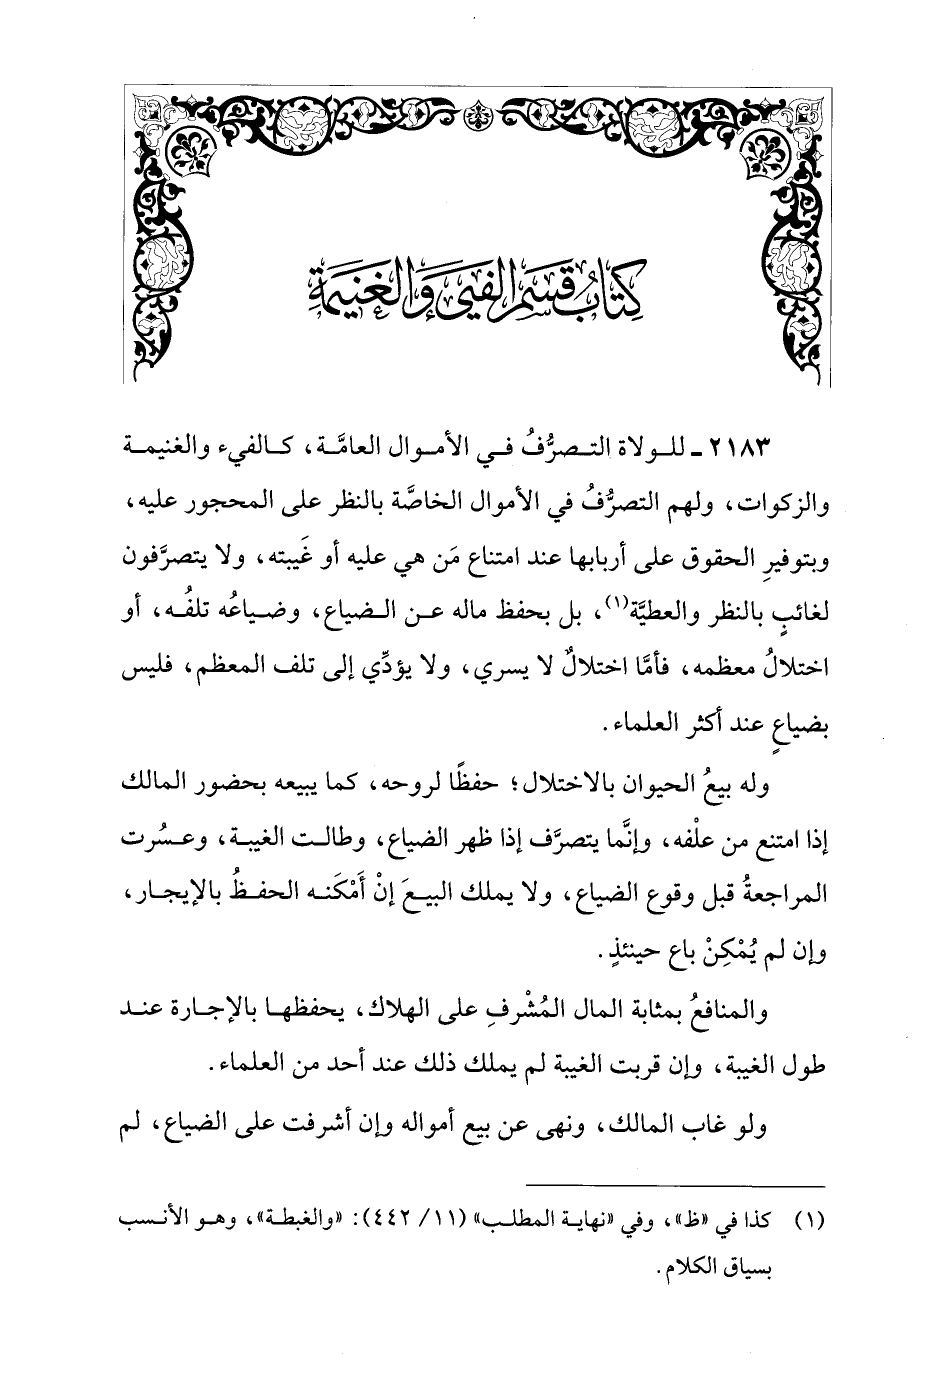 كتاب قسم الفيء والغنيمة
٢١٨٣ ـ للولاة التصرُّفُ في الأموال العامَّة، كالفيء والغنيمة
والزكوات، ولهم التصرُّفُ في الأموال الخاصَّة بالنظر على المحجور عليه،
وبتوفيرِ الحقوق على أربابها عند امتناع مَن هي عليه أو غَيبته، ولا يتصرَّفون
لغائبٍ بالنظر والعطيَّة(١)، بل بحفظ ماله عن الضياع، وضياعُه تلفُه، أو
اختلالُ معظمه، فأمَّا اختلالٌ لا يسري، ولا يؤدِّي إلى تلف المعظم، فليس
بضياعٍ عند أكثر العلماء.
وله بيعُ الحيوان بالاختلال؛ حفظًا لروحه، كما يبيعه بحضور المالك
إذا امتنع من علْفه، وإنَّما يتصرَّف إذا ظهر الضياع، وطالت الغيبة، وعسُرت
المراجعةُ قبل وقوع الضياع، ولا يملك البيعَ إنْ أَمْكَنه الحفظُ بالإيجار،
وإن لم يُمْكِنْ باع حينئذٍ.
والمنافعُ بمثابة المال المُشْرفِ على الهلاك، يحفظها بالإجارة عند
طول الغيبة، وإن قربت الغيبة لم يملك ذلك عند أحد من العلماء.
ولو غاب المالك، ونهى عن بيع أمواله وإن أشرفت على الضياع، لم
(١) كذا في «ظ»، وفي «نهاية المطلب» (١١/ ٤٤٢): «والغبطة»، وهو الأنسب
بسياق الكلام.